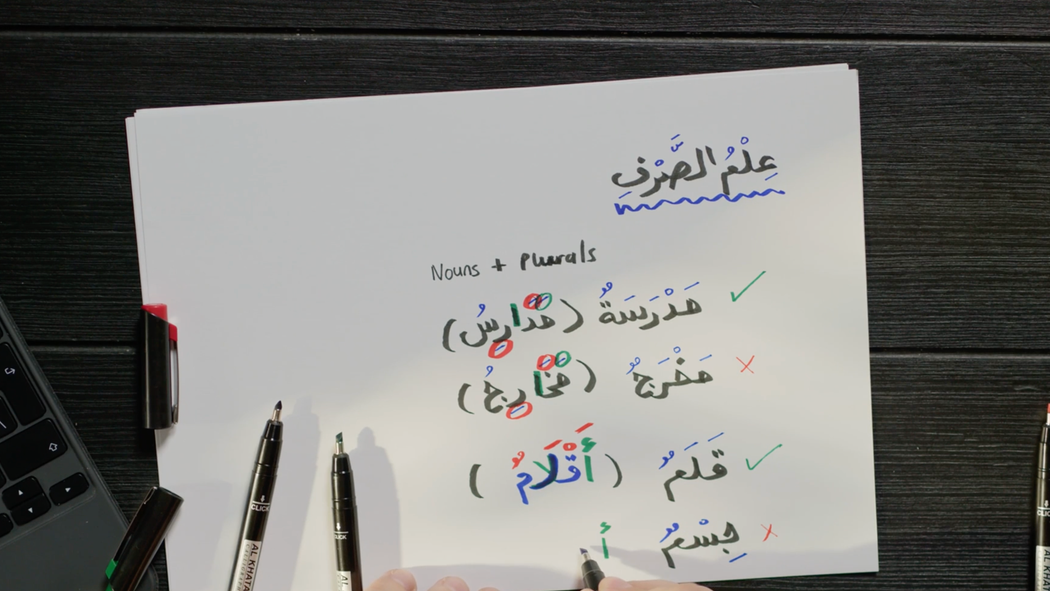 عِلْمُ الصَّرْفِ
Nouns + Plurals
مَدْرَسَةٌ (مَدَارِسُ) ✓
مَخْرَجٌ (مَخَارِجُ) ×
قَلَمٌ (أَقْلَامٌ) ✓
جِسْمٌ أ ×
CLICK
CLICK
AL KHATA